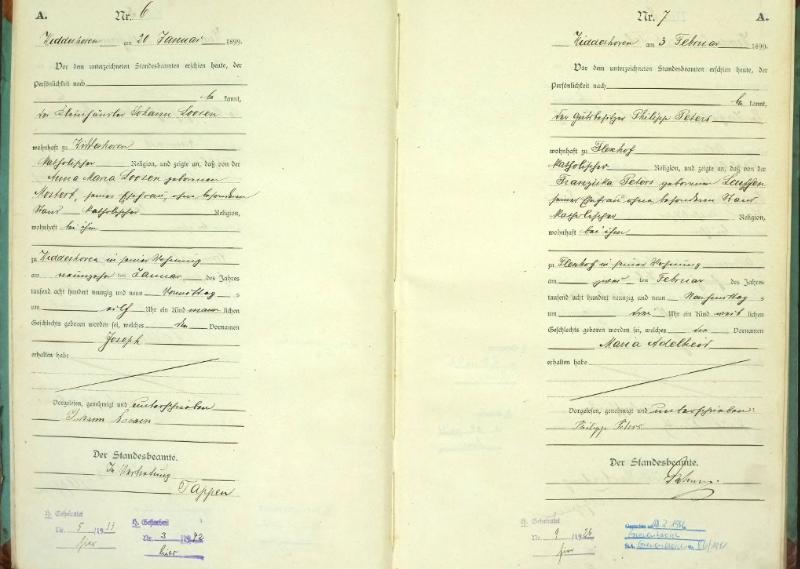 A. Nr. 6
am 20 Januar 1899.
Vor dem unterzeichneten Standesbeamten erschien heute, der
Persönlichkeit nach
be kannt,
der Kleinhändler Johann Loosen
wohnhaft zu
katholischer Religion, und zeigte an, daß von der
Anna Maria Loosen geborenen
seiner Ehefrau, ohne besonderen
Stand katholischer Religion,
wohnhaft bei ihm
zu in seiner Wohnung
am neunzehn ten Januar des Jahres
tausend acht hundert neunzig und neun Vormittag s
um elf Uhr ein Kind männ lichen
Geschlechts geboren worden sei, welches den Vornamen
Joseph
erhalten habe
Vorgelesen, genehmigt und unterschrieben
Johann Loosen
Der Standesbeamte.
In Vertretung
Tappen
Nr. 5
Nr. 3
hier
Nr. 7 A.
am 3 Februar 1899.
Vor dem unterzeichneten Standesbeamten erschien heute, der
Persönlichkeit nach
be kannt,
der Gutsbesitzer Philipp Peters
wohnhaft zu
katholischer Religion, und zeigte an, daß von der
Franziska Peters geborenen
seiner Ehefrau ohne besonderen Stand
katholischer Religion,
wohnhaft bei ihm
zu in seiner Wohnung
am zwei ten Februar des Jahres
tausend acht hundert neunzig und neun Nachmittag s
um drei Uhr ein Kind weib lichen
Geschlechts geboren worden sei, welches die Vornamen
Maria Adelheid
erhalten habe
Vorgelesen, genehmigt und unterschrieben:
Philipp Peters
Der Standesbeamte.
Nr. 9
hier